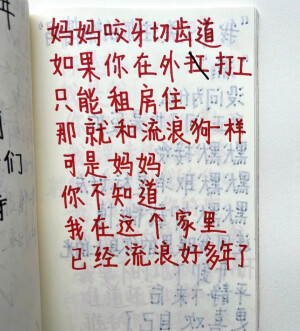 妈妈咬牙切齿道
如果你在外打工
只能租房住
那就和流浪狗一样
可是妈妈
你不知道
我在这个家里
已经流浪好多年了
们